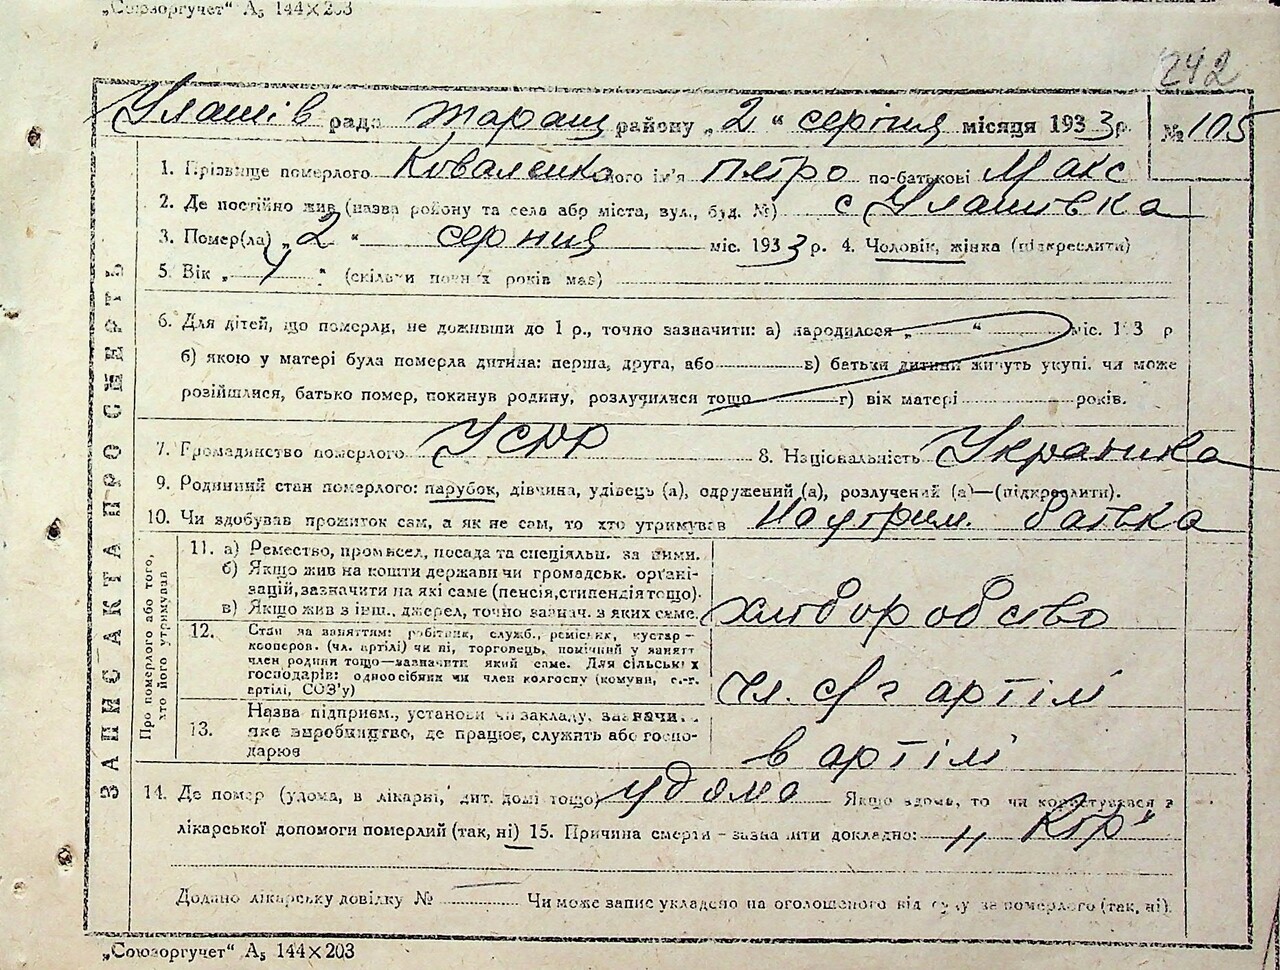 „Союзоргучет“ А₅ 144×203
242
Улашів рада Таращ району „2“ серпня місяця 1933 р. № 105
1. Прізвище померлого Коваленко його ім'я Петро по-батькові Макс
2. Де постійно жив (назва району та села або міста, вул., буд. №) с Улашівка
3. Помер(ла) „2“ серпня міс. 1933 р. 4. Чоловік, жінка (підкреслити)
5. Вік „4“ (скільки повних років мав)
6. Для дітей, що померли, не доживши до 1 р., точно зазначити: а) народилося „ “ міс. 193 р
б) якою у матері була померла дитина: перша, друга, або в) батьки дитини живуть укупі, чи може
розійшлися, батько помер, покинув родину, розлучилися тощо г) вік матері років.
7. Громадянство померлого УСРР 8. Національність
9. Родинний стан померлого: парубок, дівчина, удівець (а), одружений (а), розлучений (а)—(підкреслити).
10. Чи здобував прожиток сам, а як не сам, то хто утримував На утрим. батька
ЗАПИС АКТА ПРО СМЕРТЬ
Про померлого або того,
хто його утримував
11. а) Ремество, промисел, посада та спеціяльн. за ними.
б) Якщо жив на кошти держави чи громадськ. орґані-
зацій, зазначити на які саме (пенсія, стипендія тощо).
в) Якщо жив з інш. джерел, точно зазнач. з яких саме.
хліборобство
12. Стан за заняттям: робітник, служб., реміськ., кустар-
кооперов. (чл. артілі) чи ні, торговець, помічний у занятт
член родини тощо—зазначити який саме. Для сільських
господарів: одноосібник чи член колгоспу (комуни, с.-г.
артілі, СОЗ'у)
чл. с/г артілі
13. Назва підприєм., установи чи закладу, зазначи.,
яке виробництво, де працює, служить або госпо-
дарює
в артілі
14. Де помер (удома, в лікарні, дит. домі тощо) удома Якщо вдома, то чи користувався з
лікарської допомоги померлий (так, ні) 15. Причина смерти – зазначити докладно:
Додано лікарську довідку № — Чи може запис укладено на оголошеного від суду за померлого (так, ні).
„Союзоргучет“ А₅ 144×203